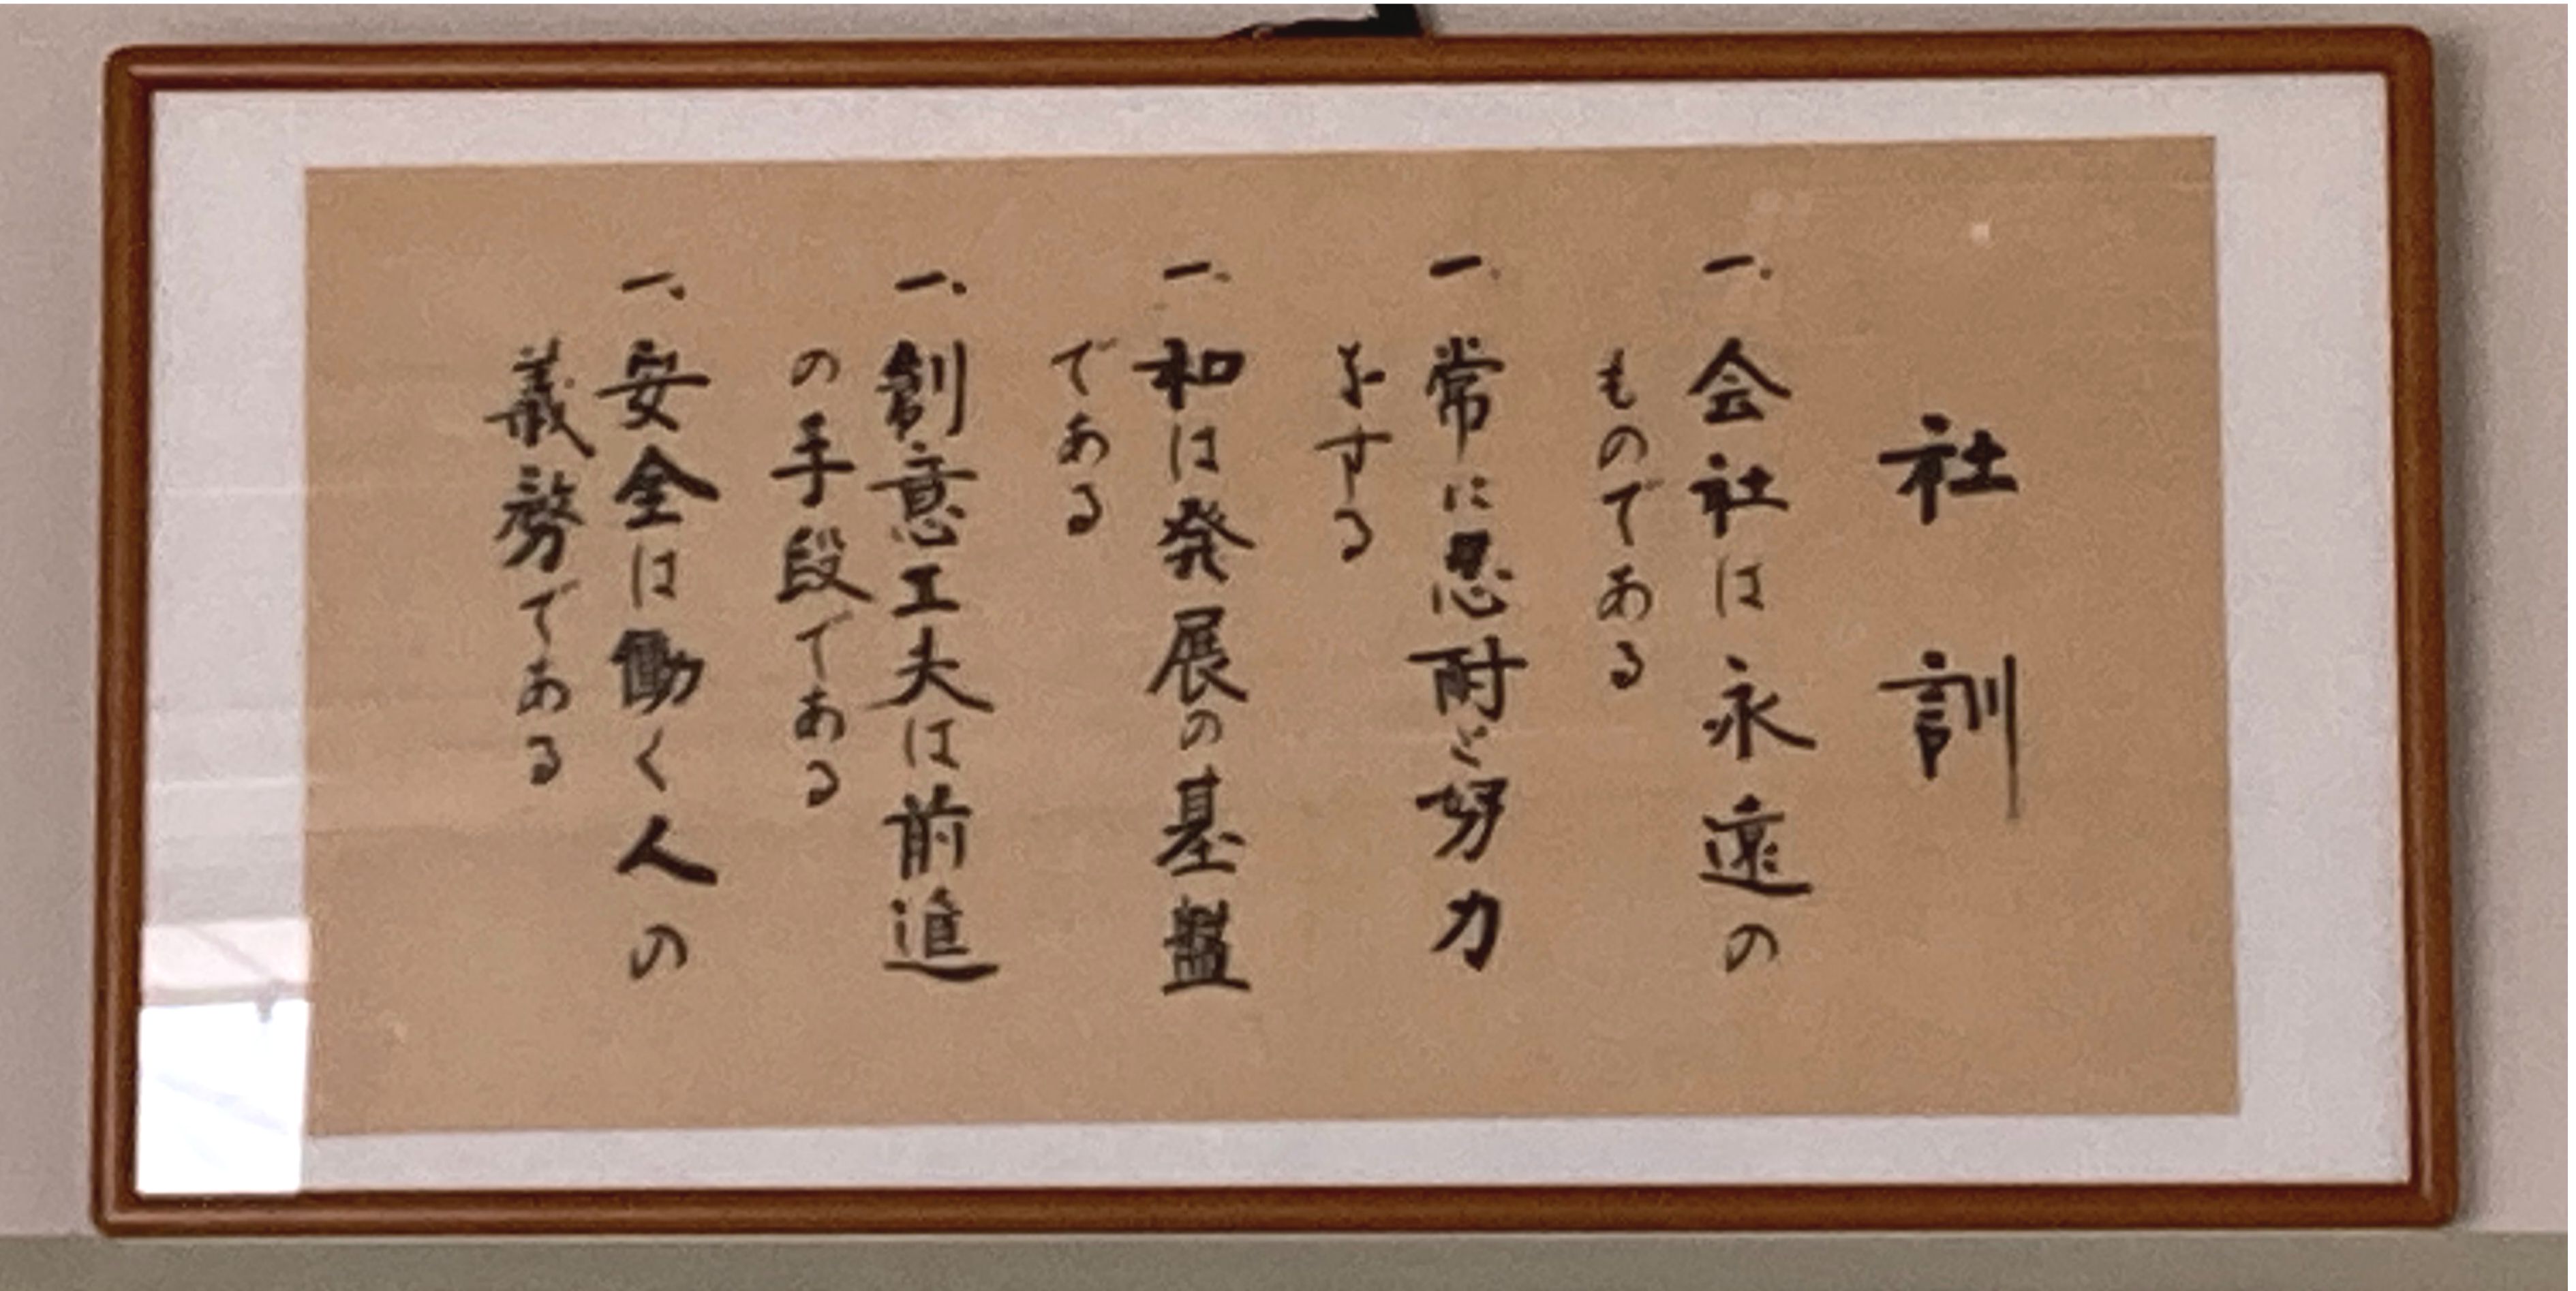 社訓
一、会社は永遠の
ものである
一、常に忍耐と努力
をする
一、和は発展の基盤
である
一、創意工夫は前進
の手段である
一、安全は働く人の
義務である